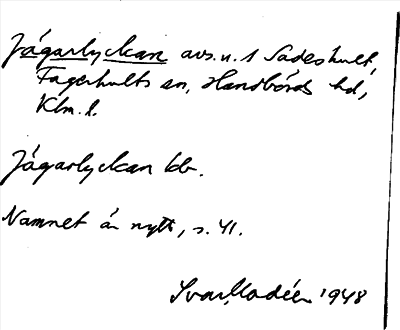 Jägarlyckan avs. u. 1 Sadeshult,
Fagerhults sn, Handbörds hd,
Klm. l.
Jägarlyckan bb.
Namnet är nytt, s. 41.
Ivar Modéer 1948